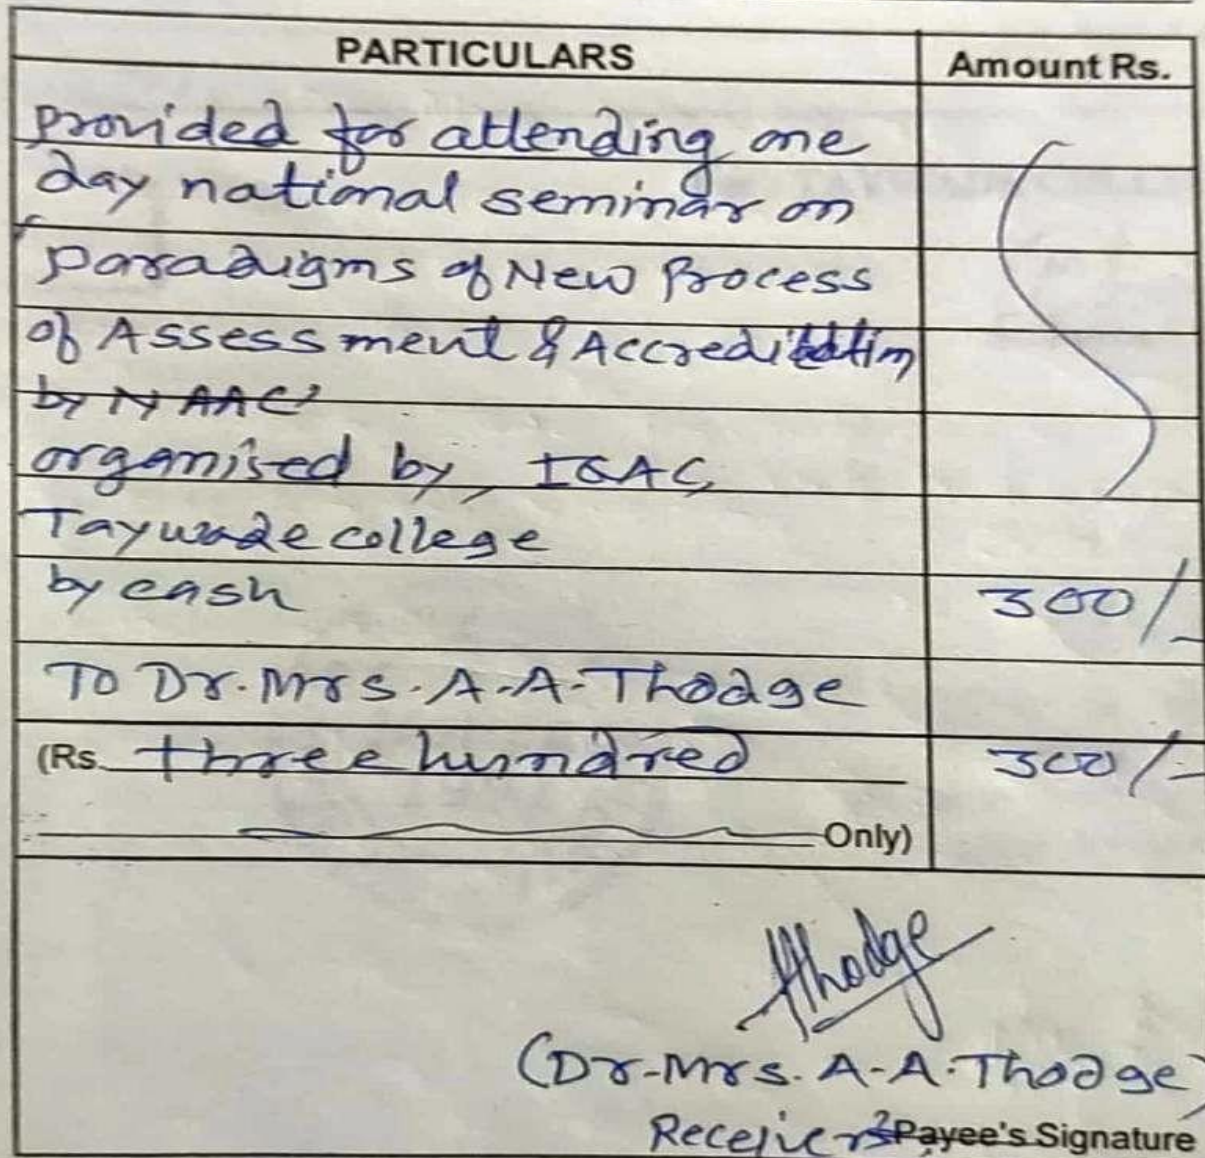 PARTICULARS Amount Rs.
Provided for attending one
day national seminar on
Paradigms of New Process
of Assessment & Accreditation
by NAAC'
organised by, IQAC,
Taywade college
by cash 300/-
To Dr. Mrs. A. A. Thodge
(Rs. three hundred 300/-
Only)
AThodge
(Dr. Mrs. A. A. Thodge)
Receiver's Payee's Signature